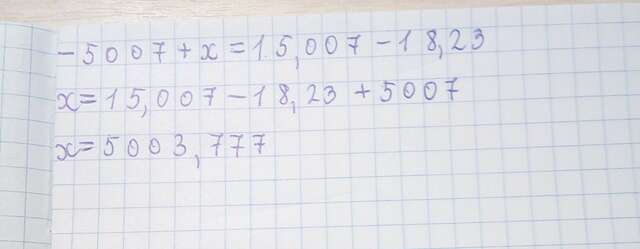 -5007+x=15,007-18,23
x=15,007-18,23+5007
x=5003,777